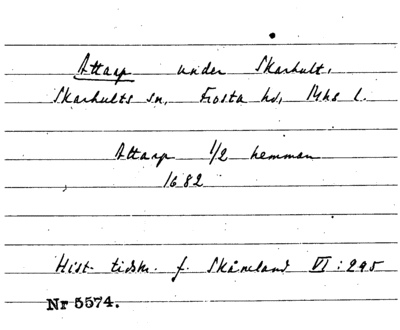 Attarp under Skarhult,
Skarhults sn, Frosta hd, Mhs l.
Attarp 1/2 hemman
1682
Hist. tidskr. f. Skåneland VI: 295
Nr 5574.